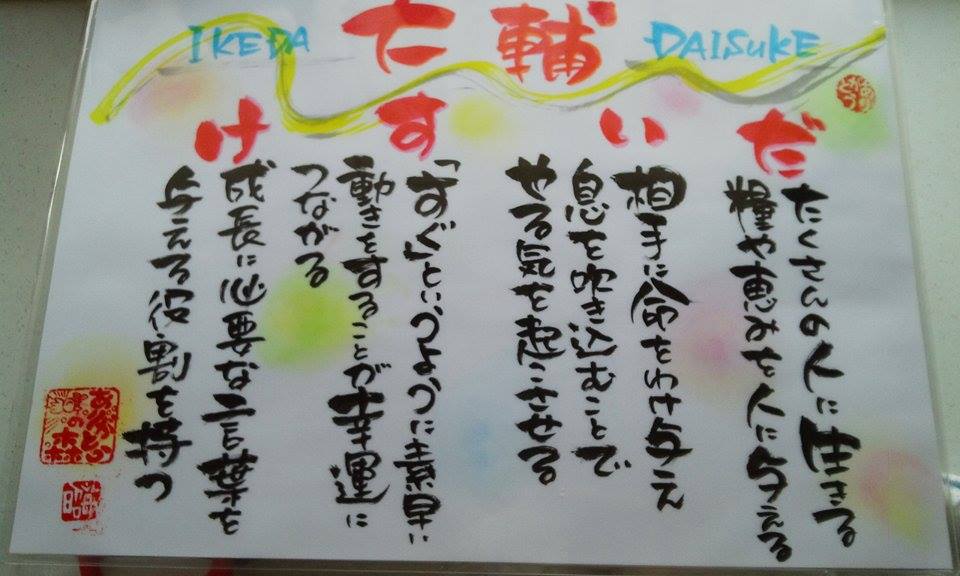 IKEDA 大輔 DAISUKE
だ
たくさんの人に生きる
糧や恵みを人に与える
い
相手に命をわけ与え
息を吹き込むことで
やる気を起こさせる
す
「すぐ」というように素早い
動きをすることが幸運に
つながる
け
成長に必要な言葉を
与える役割を持つ